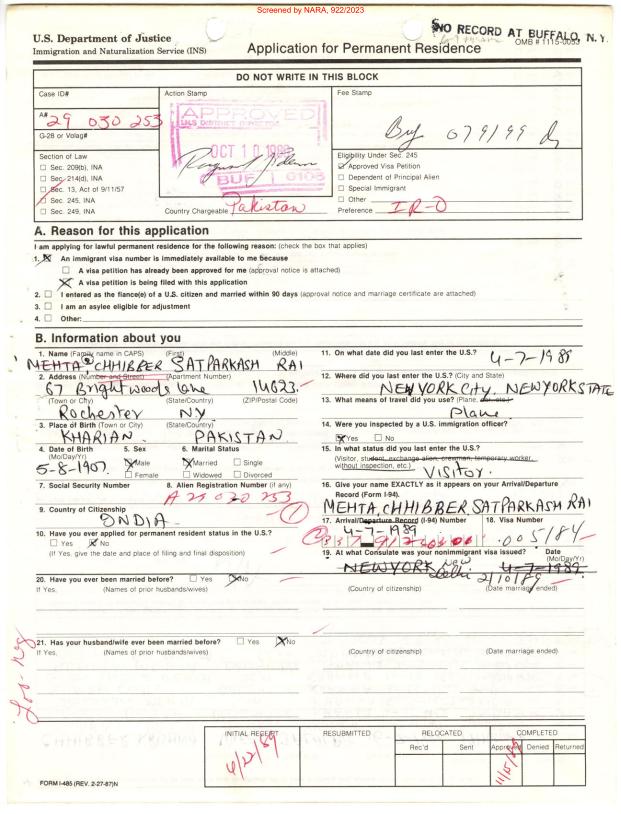 Screened by NARA, 922/2023
NO RECORD AT BUFFALO, N.Y.
U.S. Department of Justice
Immigration and Naturalization Service (INS)
Application for Permanent Residence
OMB #1115-0053
DO NOT WRITE IN THIS BLOCK
Case ID#
Action Stamp
Fee Stamp
A#
29 030 253
G-28 or Volag#
APPROVED
U.S. DISTRICT DIRECTOR
OCT 10
BUF 0103
Buf 079199
Section of Law
☐ Sec. 209(b), INA
☐ Sec. 214(d), INA
☐ Sec. 13, Act of 9/11/57
☐ Sec. 245, INA
☐ Sec. 249, INA
Country Chargeable Pakistan
Eligibility Under Sec. 245
☑ Approved Visa Petition
☐ Dependent of Principal Alien
☐ Special Immigrant
☐ Other
Preference IR-0
A. Reason for this application
I am applying for lawful permanent residence for the following reason: (check the box that applies)
1. ☒ An immigrant visa number is immediately available to me because
☐ A visa petition has already been approved for me (approval notice is attached)
☒ A visa petition is being filed with this application
2. ☐ I entered as the fiance(e) of a U.S. citizen and married within 90 days (approval notice and marriage certificate are attached)
3. ☐ I am an asylee eligible for adjustment
4. ☐ Other:
B. Information about you
1. Name (Family name in CAPS) (First) (Middle)
MEHTA CHHIBBER SATPARKASH RAI
2. Address (Number and Street) (Apartment Number)
67 Brightwoods Lane 14623.
(Town or City) (State/Country) (ZIP/Postal Code)
Rochester NY.
3. Place of Birth (Town or City) (State/Country)
KHARIAN. PAKISTAN.
4. Date of Birth (Mo/Day/Yr) 5. Sex 6. Marital Status
5-8-1907. ☒ Male ☐ Female ☒ Married ☐ Single ☐ Widowed ☐ Divorced
7. Social Security Number 8. Alien Registration Number (if any)
A 29 030 253
9. Country of Citizenship
INDIA
10. Have you ever applied for permanent resident status in the U.S.?
☐ Yes ☒ No
(If Yes, give the date and place of filing and final disposition)
11. On what date did you last enter the U.S.? 4-7-1989
12. Where did you last enter the U.S.? (City and State)
NEW YORK CITY. NEW YORK STATE
13. What means of travel did you use? (Plane, car, etc.)
Plane
14. Were you inspected by a U.S. immigration officer?
☒ Yes ☐ No
15. In what status did you last enter the U.S.?
(Visitor, student, exchange alien, crewman, temporary worker, without inspection, etc.) VISITOR.
16. Give your name EXACTLY as it appears on your Arrival/Departure Record (Form I-94).
MEHTA, CHHIBBER, SATPARKASH RAI
17. Arrival/Departure Record (I-94) Number 18. Visa Number
4-7-1989 005184
19. At what Consulate was your nonimmigrant visa issued? Date (Mo/Day/Yr)
NEW YORK New Delhi 4-7-1989. 2/10/89
20. Have you ever been married before? ☐ Yes ☒ No
If Yes, (Names of prior husbands/wives) (Country of citizenship) (Date marriage ended)
21. Has your husband/wife ever been married before? ☐ Yes ☒ No
If Yes, (Names of prior husbands/wives) (Country of citizenship) (Date marriage ended)
INITIAL RECEIPT
RESUBMITTED
RELOCATED
COMPLETED
Rec'd
Sent
Approved
Denied
Returned
6/22/89
11/15/89
FORM I-485 (REV. 2-27-87)N